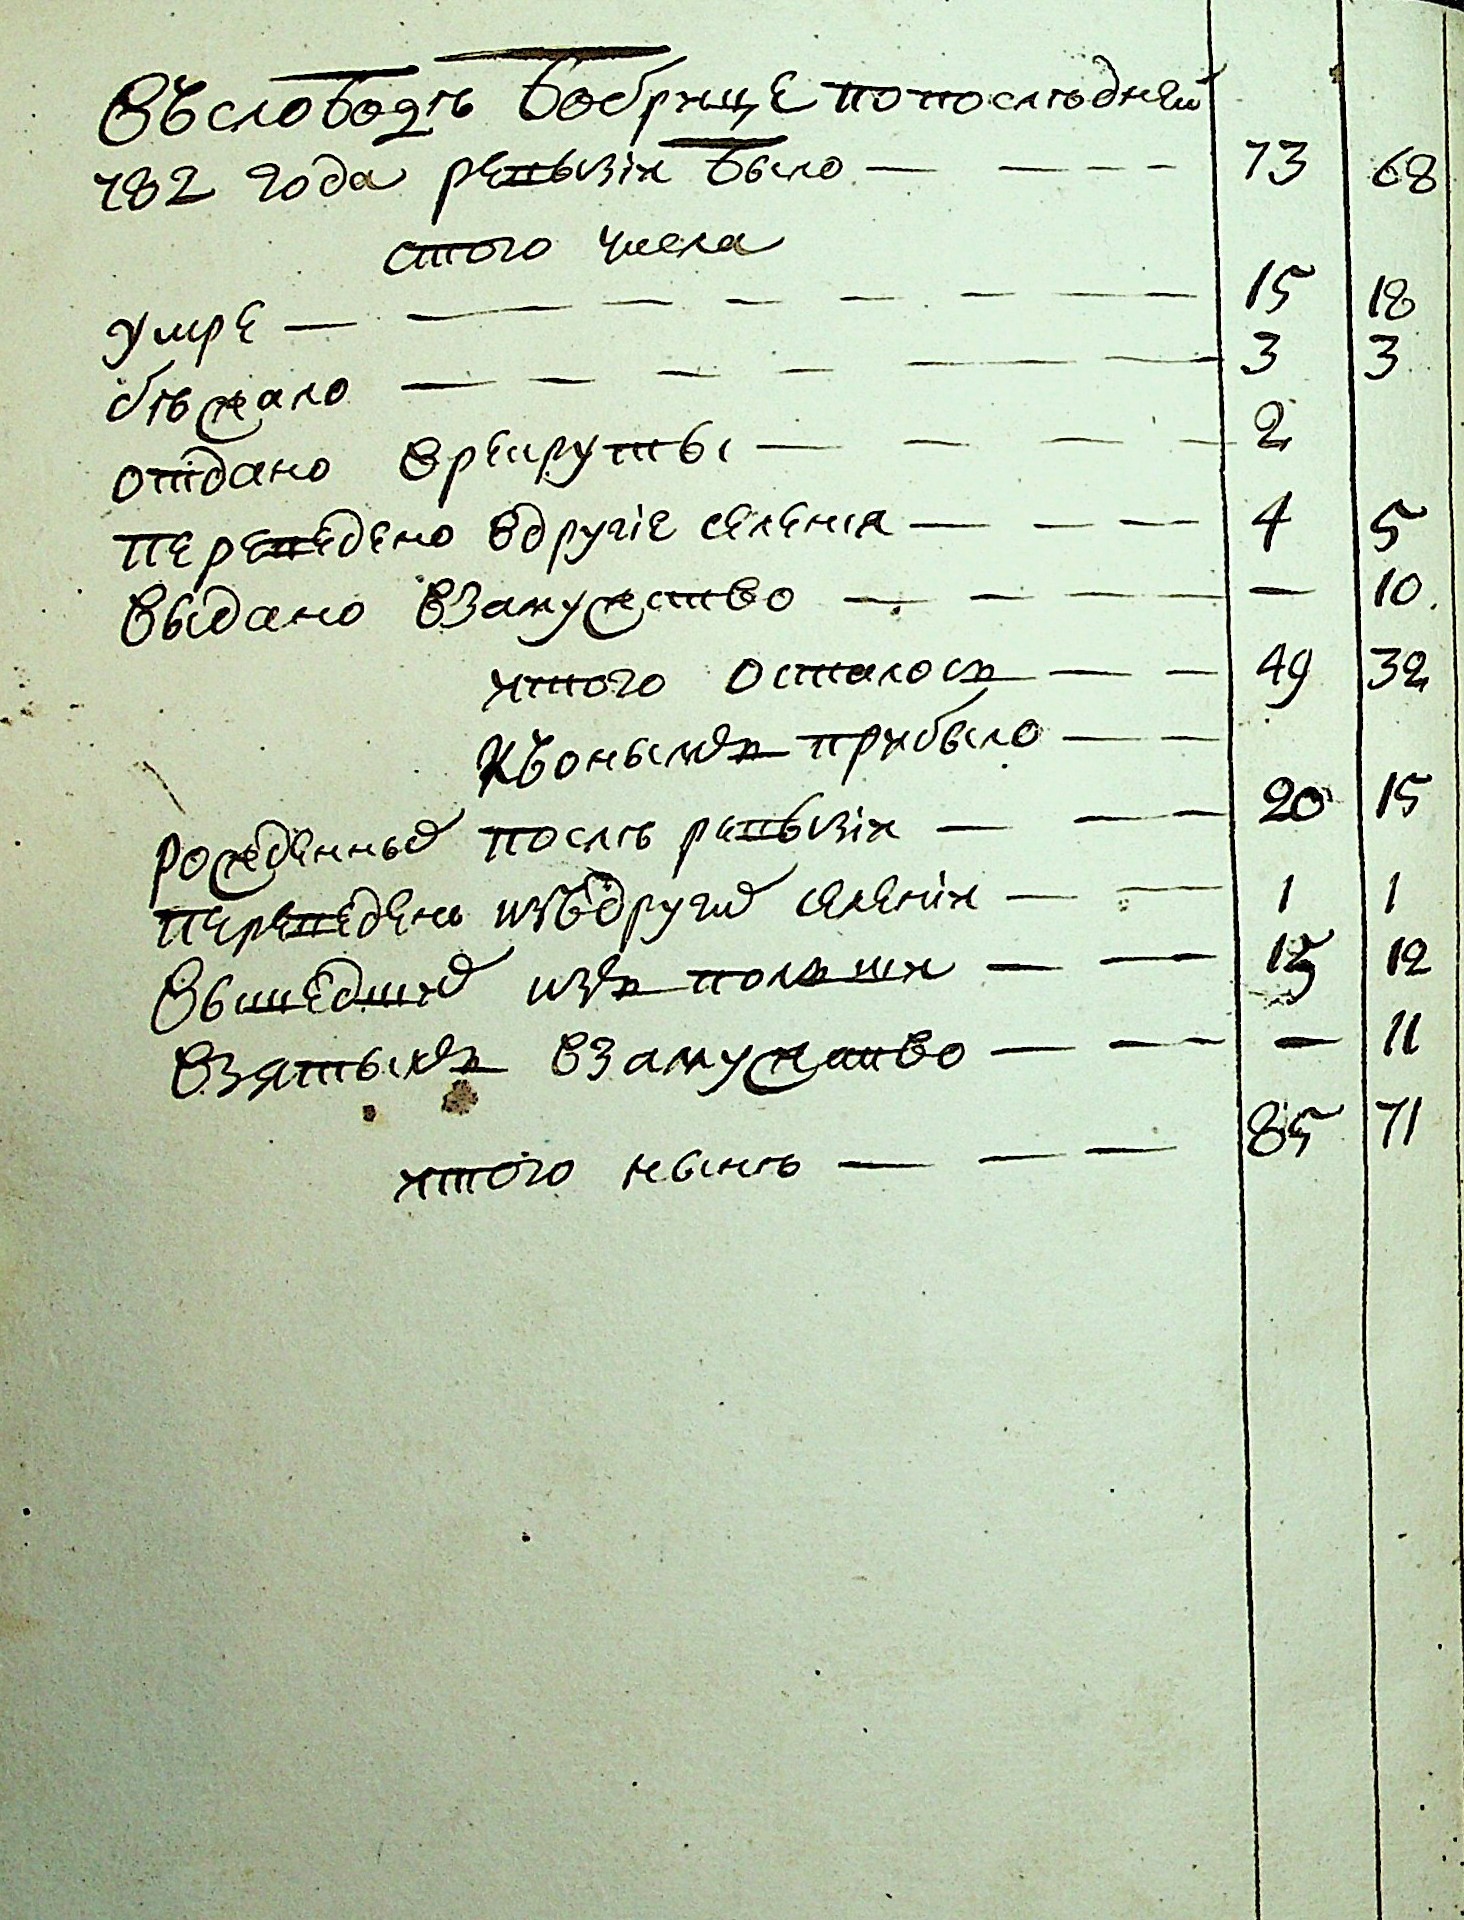 Въ слободѣ бобрище по последней
782 года ревизіи было — — — — 73 68
с того числа
умре — — — — — — — 15 18
бѣжало — — — — — — — 3 3
отдано в рекруты — — — — 2
переведено в другіе селенія — — — 4 5
выдано в замужство — — — — — 10
итого осталось — — 49 32
Къ онымъ прибыло — —
рожденных послѣ ревизіи — — — 20 15
переведенъ изъ других селеніи — — 1 1
вышедших изъ польши — — 15 12
взятыхъ в замужство — — — — 11
итого нынѣ — — — 85 71